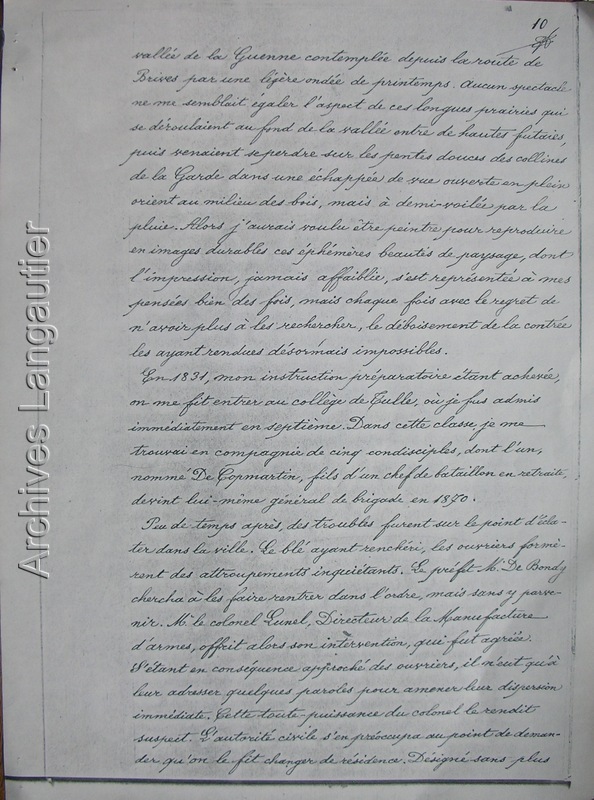 10
vallée de la Guenne contemplée depuis la route de
Brives par une légère ondée de printemps. Aucun spectacle
ne me semblait égaler l'aspect de ces longues prairies qui
se déroulaient au fond de la vallée entre de hautes futaies,
puis venaient se perdre sur les pentes douces des collines
de la Garde dans une échappée de vue ouverte en plein
orient au milieu des bois, mais à demi-voilée par la
pluie. Alors j'aurais voulu être peintre pour reproduire
en images durables ces éphémères beautés de paysage, dont
l'impression, jamais affaiblie, s'est représentée à mes
pensées bien des fois, mais chaque fois avec le regret de
n'avoir plus à les rechercher, le déboisement de la contrée
les ayant rendues désormais impossibles.
En 1831, mon instruction préparatoire étant achevée,
on me fit entrer au collège de Tulle, où je fus admis
immédiatement en septième. Dans cette classe je me
trouvai en compagnie de cinq condisciples, dont l'un,
nommé De Copmartin, fils d'un chef de bataillon en retraite,
devint lui-même général de brigade en 1870.
Peu de temps après, des troubles furent sur le point d'écla-
ter dans la ville. Le blé ayant renchéri, les ouvriers formè-
rent des attroupements inquiétants. Le préfet M. De Bondy
chercha à les faire rentrer dans l'ordre, mais sans y parve-
nir. M. le colonel Lunel, Directeur de la Manufacture
d'armes, offrit alors son intervention, qui fut agréée.
S'étant en conséquence approché des ouvriers, il n'eut qu'à
leur adresser quelques paroles pour amener leur dispersion
immédiate. Cette toute-puissance du colonel le rendit
suspect. L'autorité civile s'en préoccupa au point de deman-
der qu'on le fit changer de résidence. Désigné sans plus
Archives Langautier